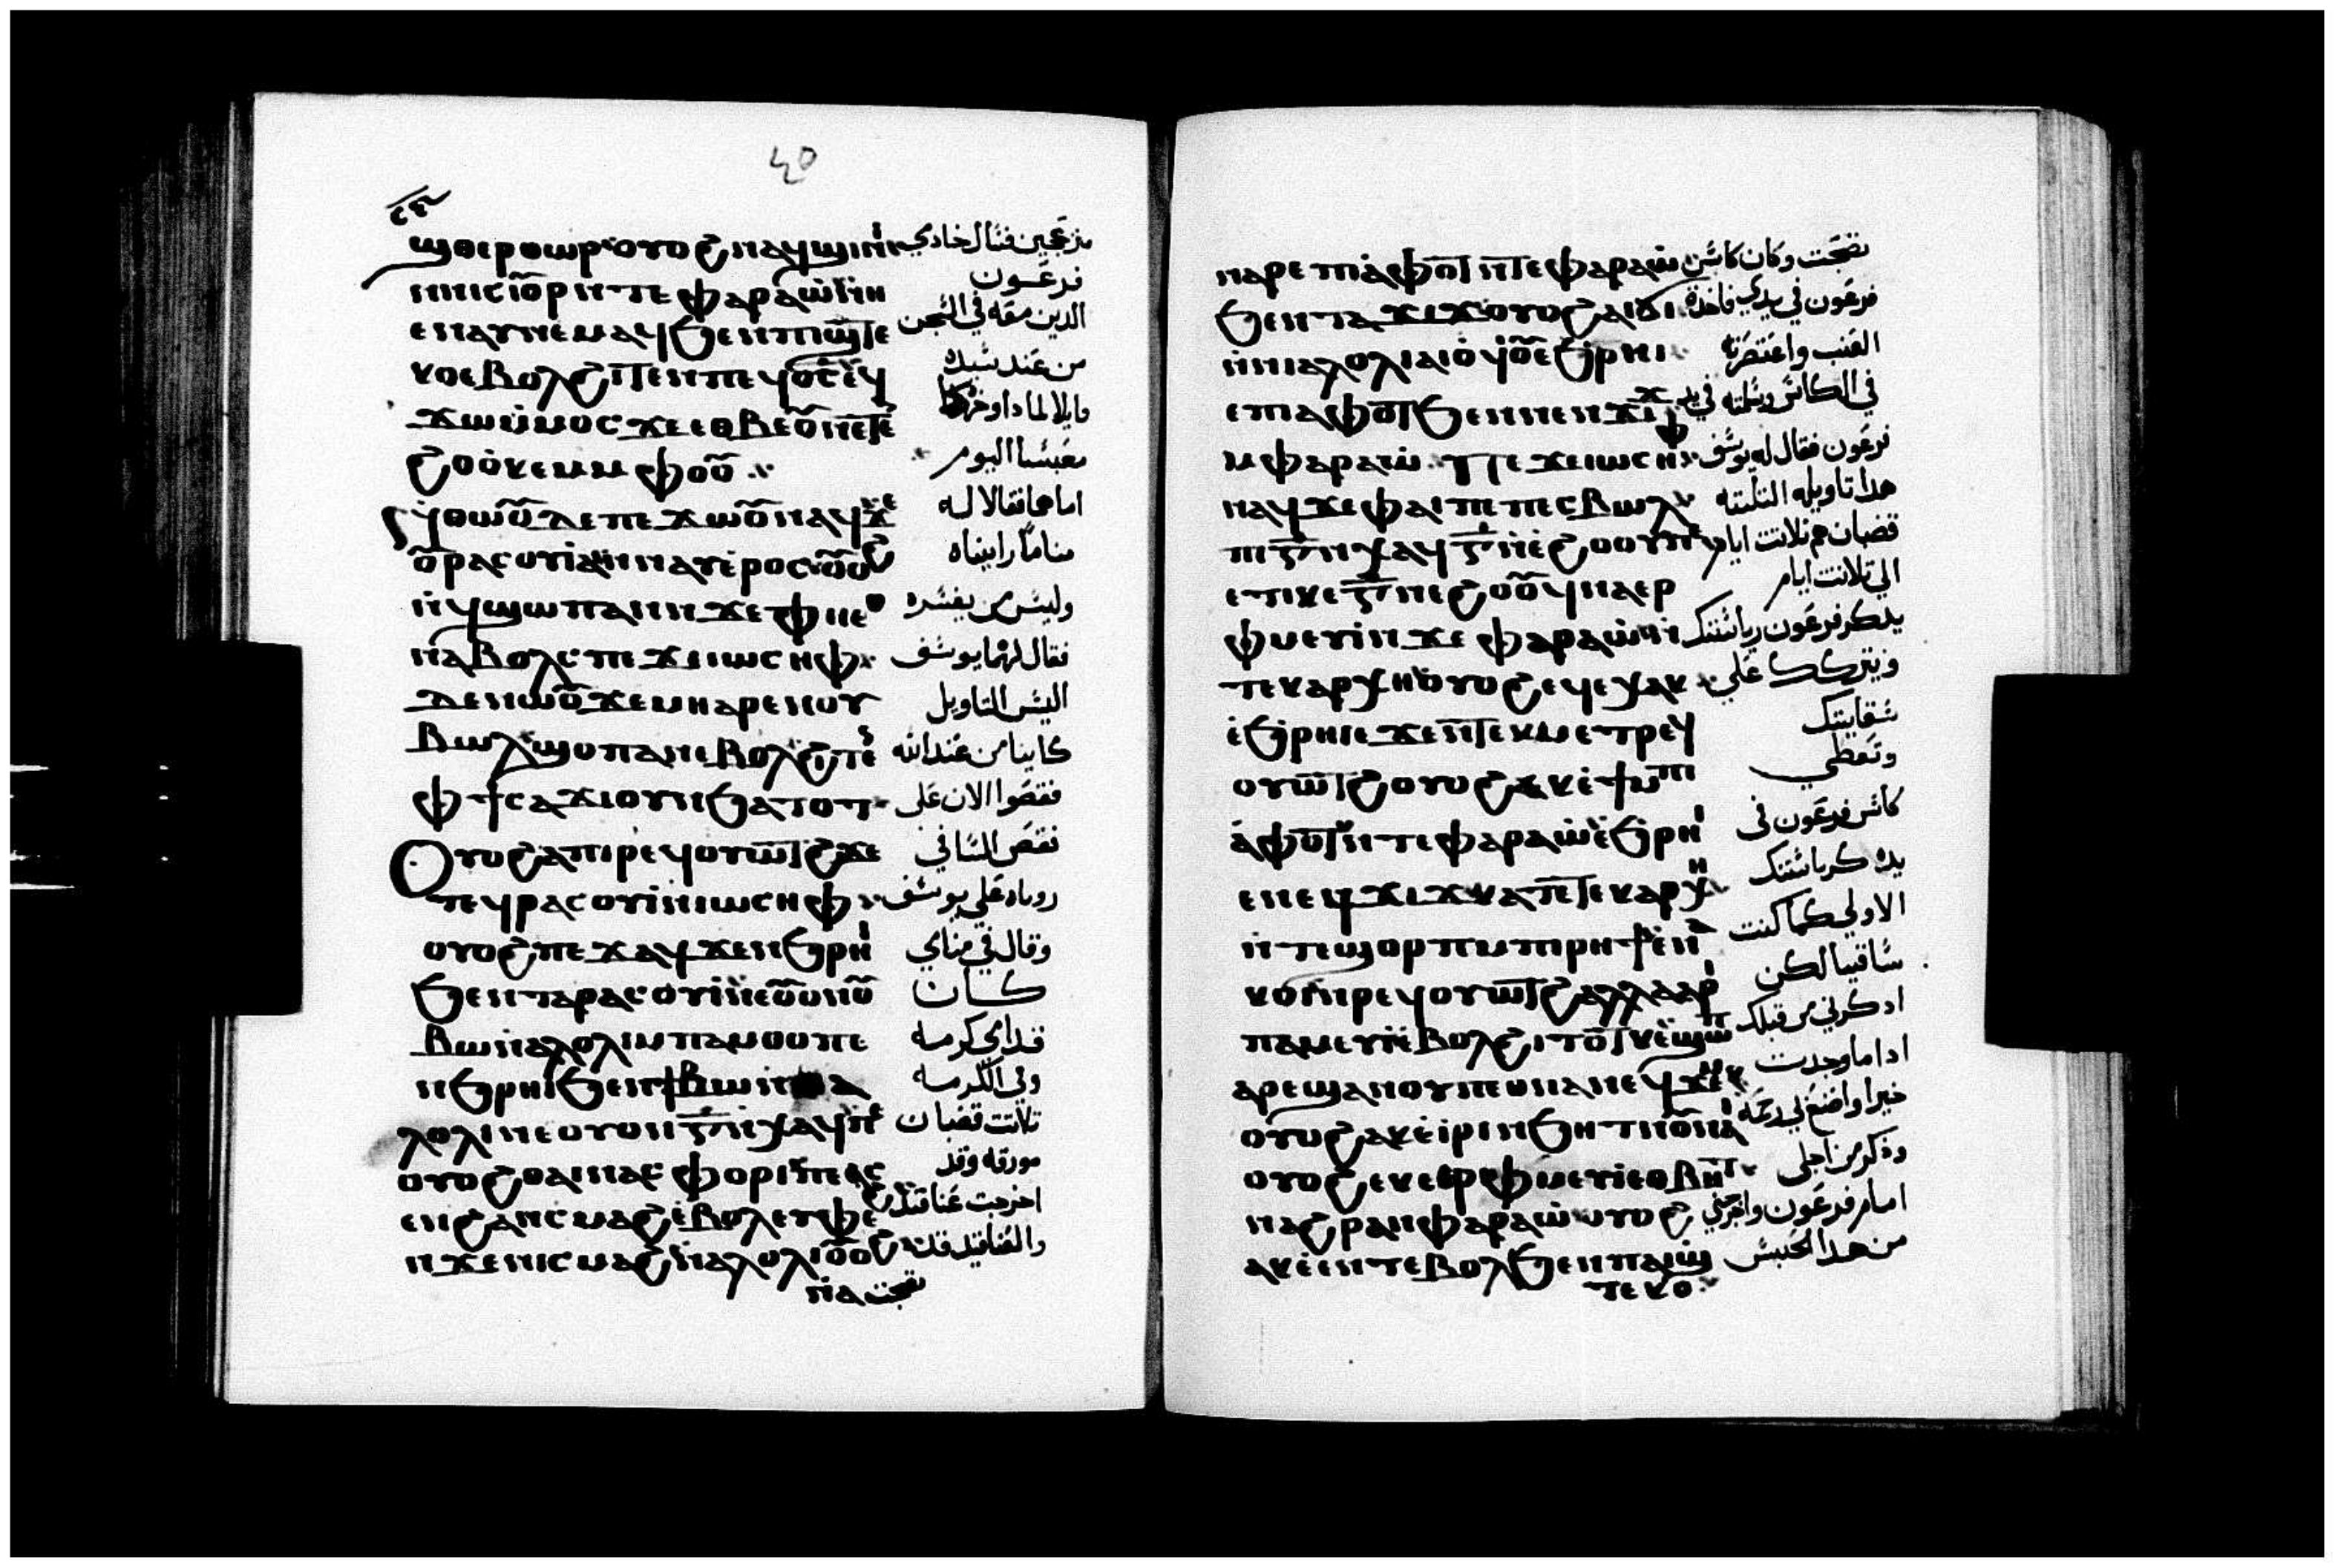 40
ϣⲑⲉⲣⲑⲱⲣ ⲟⲩⲟϩ ⲛⲁϥϣⲓⲛⲓ
ⲛⲛⲓⲥⲓⲟ̅ⲣ ⲛⲧⲉ ⲫⲁⲣⲁⲱ̀ ⲛⲏ
ⲉⲛⲁⲩⲛⲉⲙⲁϥ ϧⲉⲛ ⲡⲓϣⲧⲉ
ⲕⲟ ⲉⲃⲟⲗϩⲓⲧⲉⲛ ⲡⲉϥⲟ̅ⲥ̅ ⲉϥ
ϫⲱ ⲙ̀ⲙⲟⲥ ϫⲉ ⲉⲑⲃⲉⲟ̅ ⲛⲉⲧⲉ
ϩⲟ ⲟ̀ⲕⲉⲙ ⲙⲫⲟⲟ̅
ⲛⲑⲱⲟ̅ ⲇⲉ ⲡⲉϫⲱⲟ̅ ⲛⲁϥ ϫⲉ
ⲟ̅ⲣⲁⲥⲟⲩⲓ ⲁⲛⲛⲁⲩ ⲉ̀ⲣⲟⲥ ⲟ̅ⲟϩ
ⲛ̀ϥϣⲱⲡ ⲁⲛ ⲛϫⲉ ⲫⲏ ⲉⲑ
ⲛⲁⲃⲟⲗⲥ ⲡⲉϫⲉ ⲓⲱⲥⲏⲫ
ⲇⲉ ⲛⲱⲟ̅ ϫⲉ ⲙⲏ ⲁⲣⲉ ⲛⲟⲩ
ⲃⲱⲗ ϣⲟⲡ ⲁⲛ ⲉⲃⲟⲗϩⲓⲧⲉ
ⲫϯ ⲥⲁϫⲓ ⲟⲩⲛ ϧⲁⲧⲟⲧ
ⲟⲩⲟϩ ⲁ ⲡⲓⲣⲉϥⲟⲩⲱⲧϩ ϫⲉ
ⲧⲉϥⲣⲁⲥⲟⲩⲓ ⲛⲓⲱⲥⲏⲫ
ⲟⲩⲟϩ ⲡⲉϫⲁϥ ϫⲉ ⲛϧⲣⲏⲓ
ϧⲉⲛ ⲧⲁⲣⲁⲥⲟⲩⲓ ⲛⲉ ⲟ̅ⲟⲛ ⲟ̅
ⲃⲱ ⲛⲁⲗⲟⲗⲓ ⲙⲡⲁⲙⲑⲟ ⲡⲉ
ⲛϧⲣⲏⲓ ϧⲉⲛ ϯⲃⲱ ⲛⲁ
ⲗⲟⲗⲓ ⲛⲉ ⲟⲩⲟⲛ ⲅ̅ ⲛⲭⲁϥ ⲡⲉ
ⲟⲩⲟϩ ⲑⲁⲓ ⲛⲁⲥⲫⲟⲣⲓ ⲡⲉ ⲁⲥ
ⲉⲛ ϩⲁⲛⲥⲙⲁϩ ⲉ̀ⲃⲟⲗ ⲉⲩⲫⲉϩ
ⲛϫⲉ ⲛⲓⲥⲙⲁϩ ⲛⲁⲗⲟⲗⲓ ⲟ̅ⲟϩ
ⲛⲁ
منزعجين فسال خادمي
فرعون
الدين معه في السجن
من عند سيده
قايلا لماذا وجوهكما
معبسا اليوم
اما هما فقالا له
مناماً رايناه
وليس من يفسره
فقال لهما يوسف
اليس التاويل
كاينا من عند الله
فقصوا الان على
فقص الساقي
روياه على يوسف
وقال في منامي
كان
قدامي كرمه
وفي الكرمه
تلاتت قضبان
مورقه وقد
اخرجت عناقيد
والعناقيد قد
نضجت
ⲛⲁⲣⲉ ⲡⲓⲁ̀ⲫⲟⲧ ⲛⲧⲉ ⲫⲁⲣⲁⲱ̀
ϧⲉⲛ ⲧⲁϫⲓϫ ⲟⲩⲟϩ ⲁⲓϭⲓ
ⲛ̀ⲛⲓⲁⲗⲟⲗⲓ ⲁⲓⲟ̀ϥⲟ̅ ⲉϧⲣⲏⲓ
ⲉⲡⲓⲁⲫⲟⲧ ϧⲉⲛ ⲛⲉⲛϫⲓϫ
ⲙⲫⲁⲣⲁⲱ̀ ⲡⲉϫⲉ ⲓⲱⲥⲏⲫ
ⲛⲁϥ ϫⲉ ⲫⲁⲓ ⲡⲉ ⲡⲉⲥⲃⲱⲗ
ⲡⲓⲅ̅ ⲛⲭⲁϥ ⲅ̅ ⲛⲉ̀ϩⲟⲟⲩ ⲡⲉ
ⲉⲧⲓ ⲕⲉⲅ̅ ⲛⲉϩⲟⲟ̅ ϥⲛⲁⲉⲣ
ⲫⲙⲉⲩⲓ ⲛϫⲉ ⲫⲁⲣⲁⲱ̀ ⲛ̀
ⲧⲉⲕⲁⲣⲭⲏ ⲟⲩⲟϩ ⲉϥⲉⲭⲁⲕ
ⲉ̀ϧⲣⲏⲓ ⲉϫⲉⲛ ⲧⲉⲕⲙⲉⲧⲣⲉϥ
ⲟⲩⲱⲧϩ ⲟⲩⲟϩ ⲉⲕⲉ̀ϯ ⲙⲡⲓ
ⲁ̀ⲫⲟⲧ ⲛⲧⲉ ⲫⲁⲣⲁⲱ̀ ⲉ̀ϧⲣⲏⲓ
ⲉⲛⲉϥϫⲓϫ ⲕⲁⲧⲁ ⲧⲉⲕⲁⲣⲭⲏ
ⲛ̀ⲧⲉ ϣⲟⲣⲡ ⲙⲡⲓⲣⲏϯ ⲉ̀ⲛⲁ
ⲕⲟⲓ ⲛⲣⲉϥⲟⲩⲱⲧϩ ⲁⲗⲗⲁ ⲁⲣⲓ
ⲡⲁⲙⲉⲩⲓ ⲉ̀ⲃⲟⲗϩⲓⲧⲟⲧⲕ ⲉ̀ϣⲱⲡ
ⲁⲣⲉϣⲁⲛ ⲟⲩⲡⲉⲑⲛⲁⲛⲉϥ ϫⲉⲙⲕ
ⲟⲩⲟϩ ⲉⲕⲉ̀ⲓⲣⲓ ⲛϧⲏⲧ ⲛⲟ̅ⲛⲁⲓ
ⲟⲩⲟϩ ⲉⲕⲉⲉⲣⲫⲙⲉⲩⲓ ⲉⲑⲃⲏⲧ
ⲛⲁϩⲣⲁⲛ ⲫⲁⲣⲁⲱ̀ ⲟⲩⲟϩ
ⲉⲕⲉ̀ⲉⲛⲧ ⲉⲃⲟⲗ ϧⲉⲛ ⲡⲁⲓϣ
ⲧⲉⲕⲟ
نضجت وكان كاس
فرعون في يدي فاخدت
العنب واعتصرته
في الكاس وسلمته في يد
فرعون فقال له يوسف
هدا تاويله التلتته
قضبان هم تلاتت ايام
الي تلاتت ايام
يدكر فرعون رياستك
ويتركك على
سقايتك
وتعطي
كاس فرعون في
يده كرياستك
الاولى كما كنت
ساقيا لكن
ادكرني من قبلك
ادا ما وجدت
خيرا واصنع لي رحمه
ودكر من اجلي
امام فرعون واخرجني
من هدا الحبس